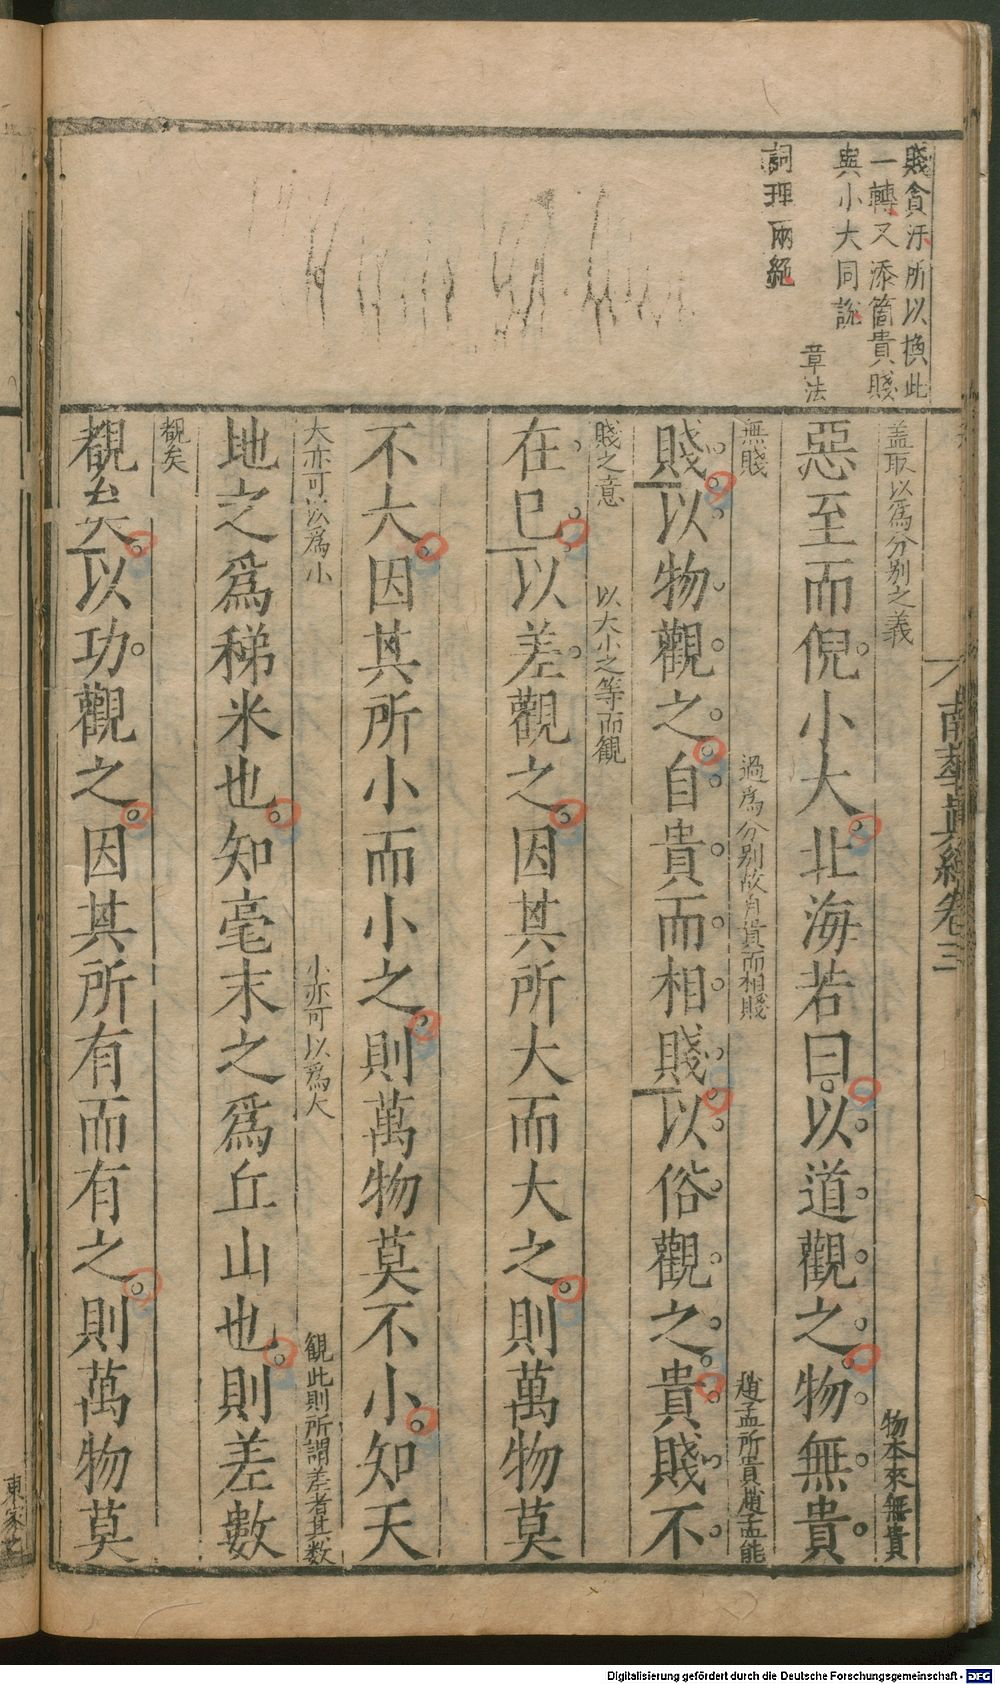 賤貪汙所以換此
一轉又添箇貴賤
與小大同說
章法
詞理兩絕
南華眞經卷三
蓋取以爲分别之義
物本來無貴
惡至而倪小大北海若曰以道觀之物無貴
無賤
過爲分别故自貴而相賤
趙孟所貴趙孟能
賤以物觀之自貴而相賤以俗觀之貴賤不
賤之意
以大小之等而観
在已以差觀之因其所大而大之則萬物莫
不大因其所小而小之則萬物莫不小知天
大亦可以爲小
小亦可以爲大
観此則所謂差者其数
地之爲稊米也知毫末之爲丘山也則差數
観矣
覩矣以功觀之因其所有而有之則萬物莫
東家之
Digitalisierung gefördert durch die Deutsche Forschungsgemeinschaft - DFG